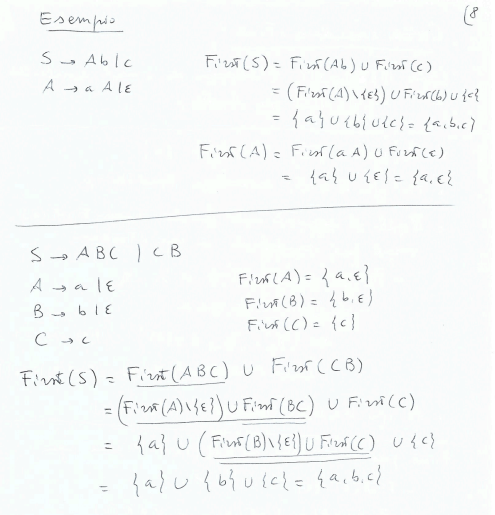 Esempio (8
S → Ab | c First(S) = First(Ab) ∪ First(c)
A → a A | ε = (First(A)\{ε}) ∪ First(b) ∪ {c}
= {a} ∪ {b} ∪ {c} = {a, b, c}
First(A) = First(aA) ∪ First(ε)
= {a} ∪ {ε} = {a, ε}
S → A B C | C B
A → a | ε First(A) = {a, ε}
B → b | ε First(B) = {b, ε}
C → c First(C) = {c}
First(S) = First(ABC) ∪ First(CB)
= (First(A)\{ε}) ∪ First(BC) ∪ First(C)
= {a} ∪ (First(B)\{ε}) ∪ First(C) ∪ {c}
= {a} ∪ {b} ∪ {c} = {a, b, c}